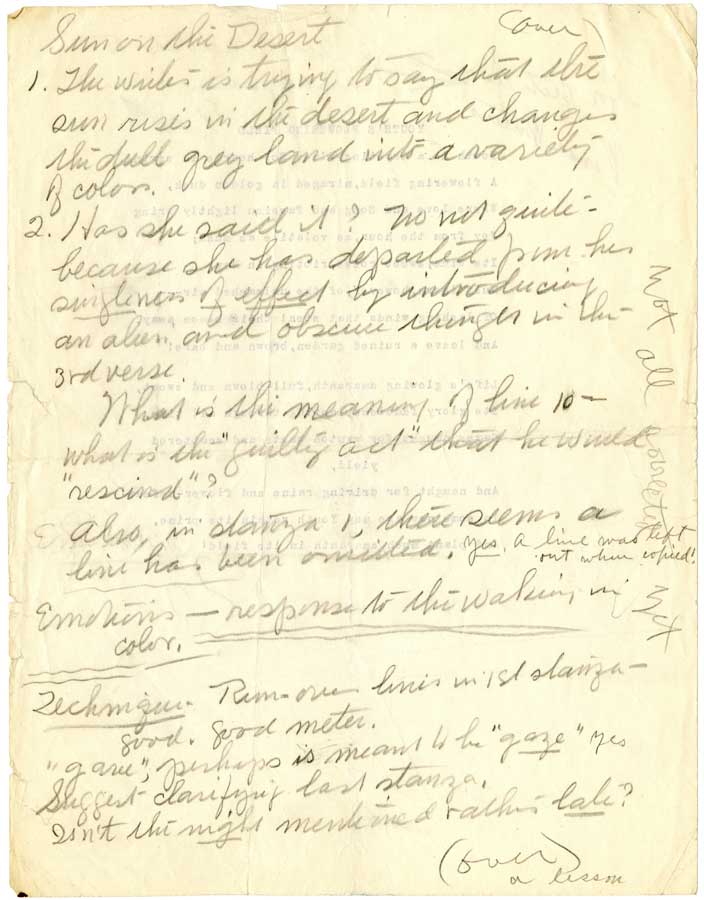 (over)
Sun on the Desert
1. The writer is trying to say that the
sun rises in the desert and changes
the dull grey land into a variety
of color.
2. Has she said it? No not quite -
because she has departed from her
singleness of effect by introducing
an alien and obscure thought in the
3rd verse.
What is the meaning of line 10 —
what is the "guilty act" that he would
"rescind"?
Also, in stanza 1, there seems a
line has been omitted. Yes. A line was left
out when copied!
Emotions — response to the waking in
color.
Technique. Run-over lines in 1st stanza —
good. Good meter.
"gave", perhaps is meant to be "gaze" yes
Suggest clarifying last stanza.
Isn't the night mentioned rather late?
(over)
a lesson
not all